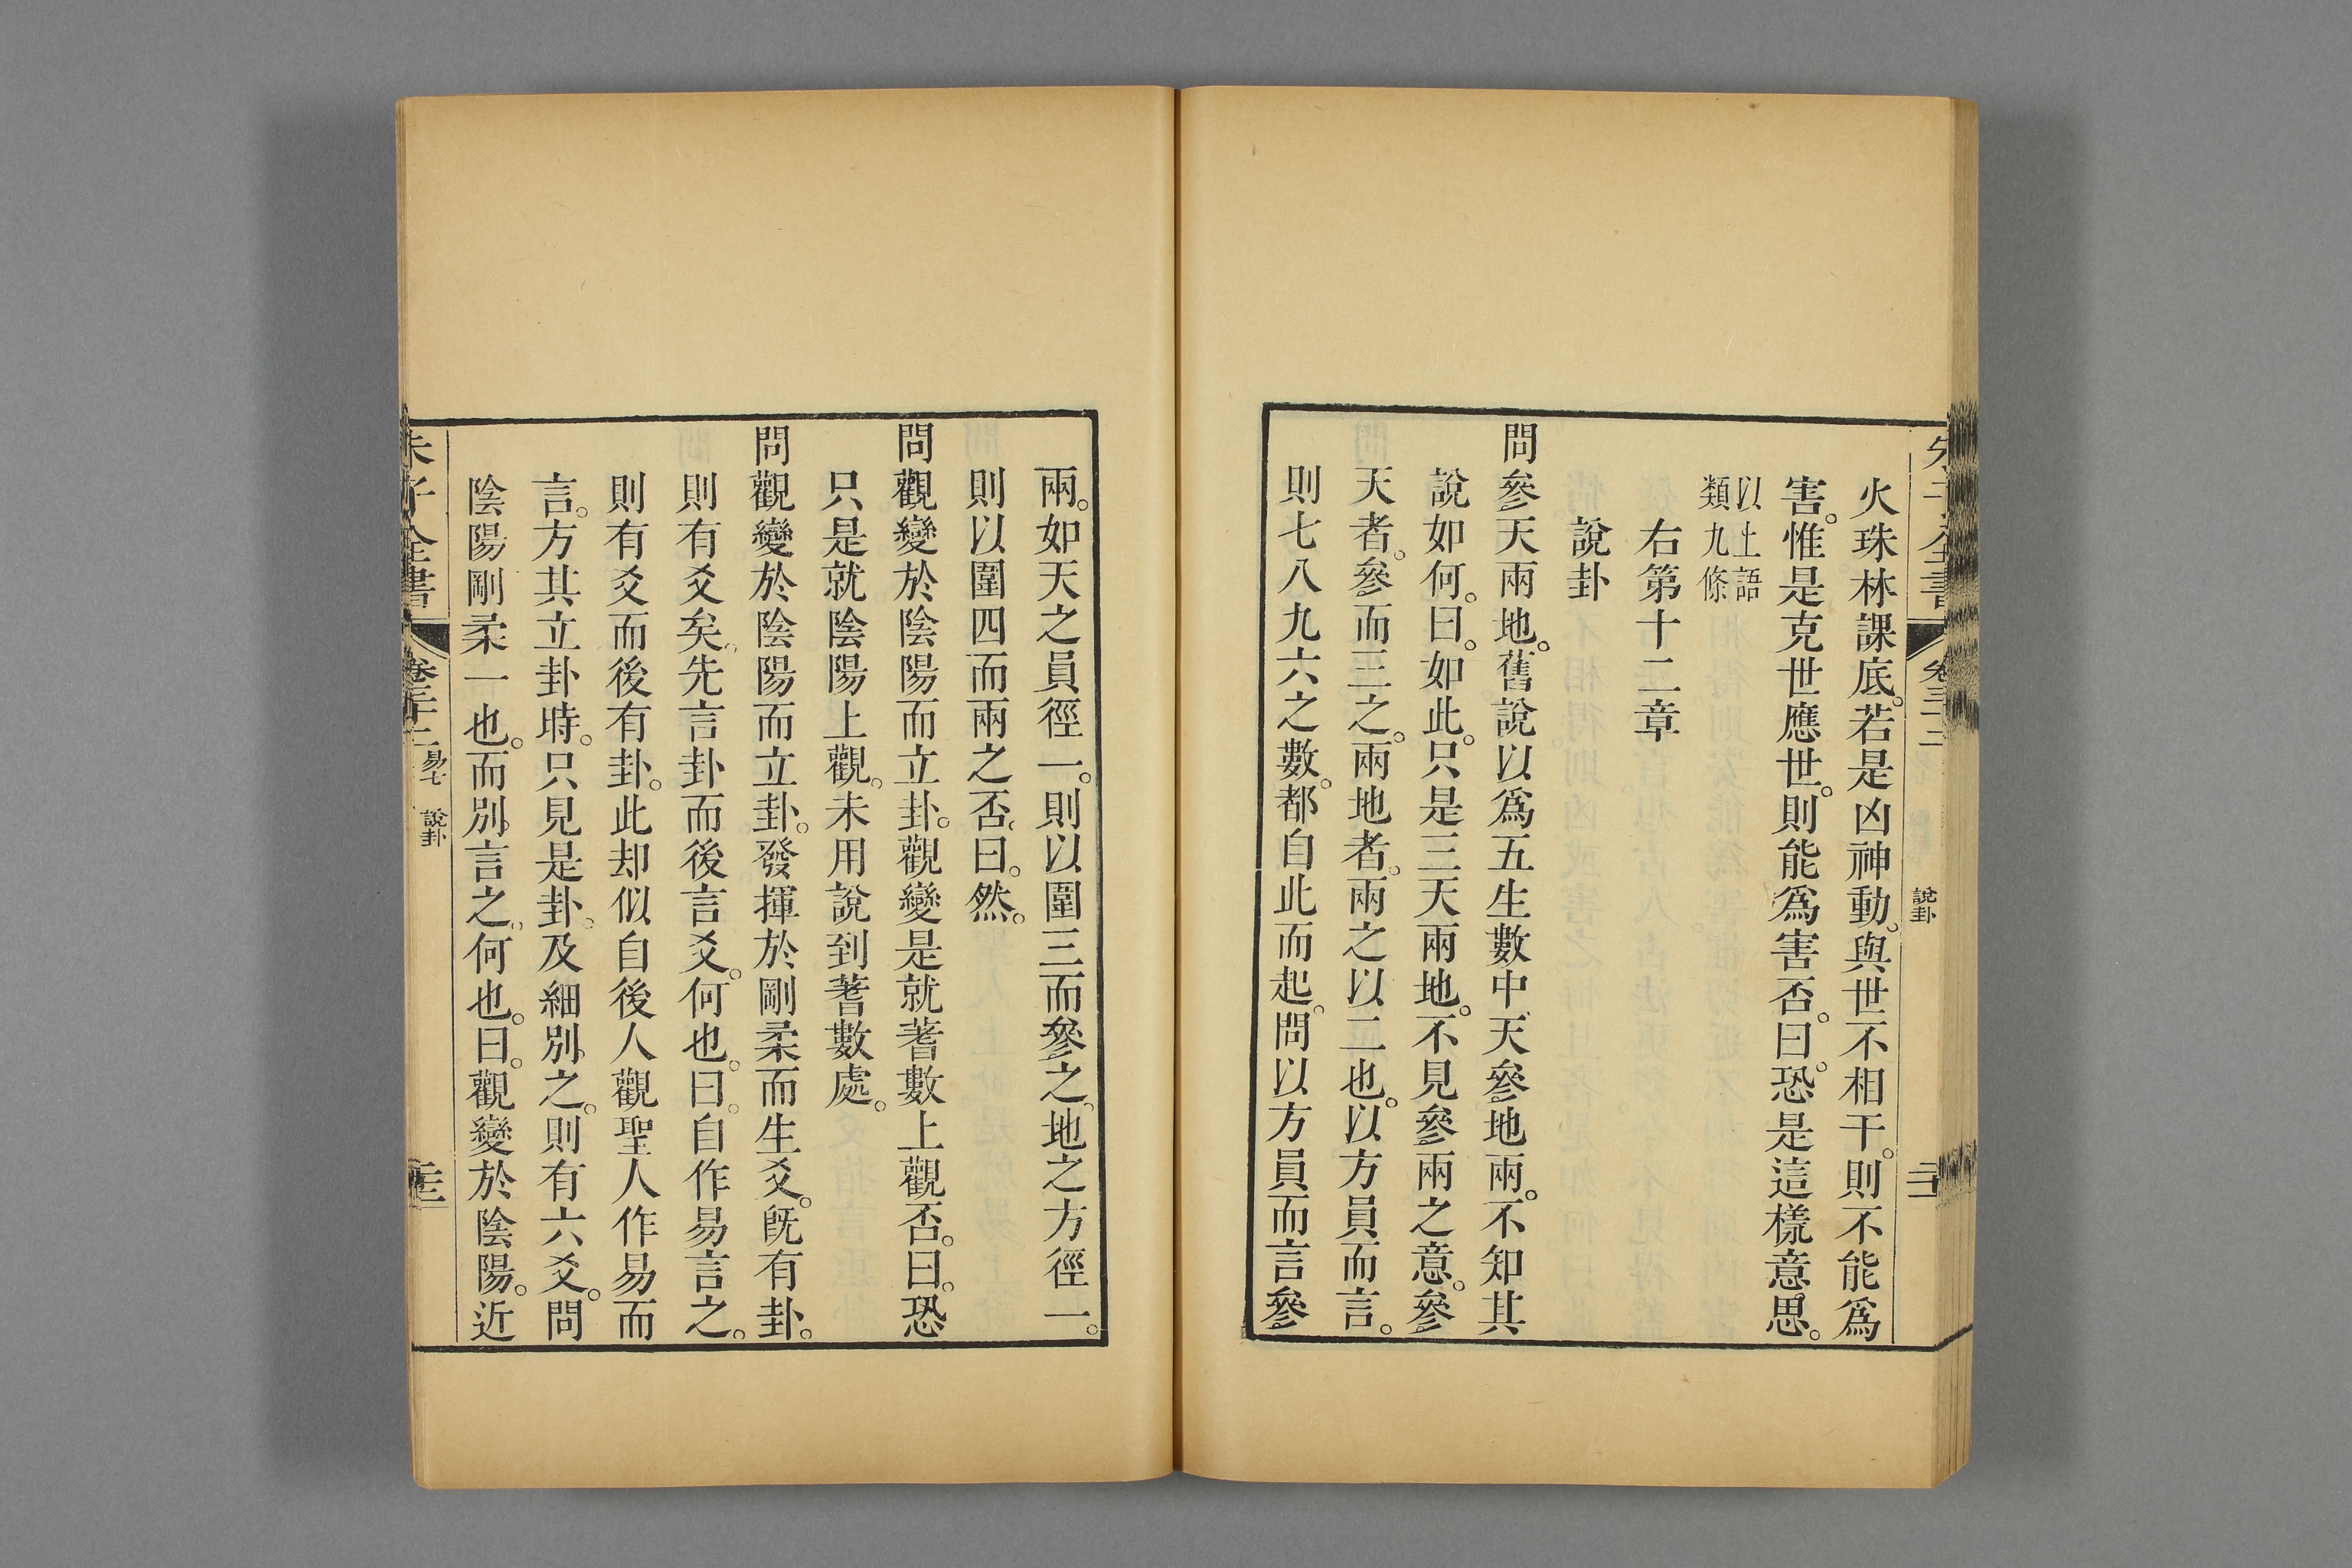 火珠林課底。若是凶神動。與世不相干。則不能爲
害。惟是克世應世。則能爲害否。曰。恐是這樣意思。
以上語
類九條
右第十二章
說卦
問參天兩地。舊說以爲五生數中天參地兩。不知其
說如何。曰。如此。只是三天兩地。不見參兩之意。參
天者。參而三之。兩地者。兩之以二也。以方員而言。
則七八九六之數。都自此而起。問以方員而言參
說卦
兩。如天之員徑一。則以圍三而參之。地之方徑一。
則以圍四而兩之否。曰。然。
問觀變於陰陽而立卦。觀變是就蓍數上觀否。曰。恐
只是就陰陽上觀。未用說到蓍數處。
問觀變於陰陽而立卦。發揮於剛柔而生爻。旣有卦。
則有爻矣。先言卦而後言爻。何也。曰。自作易言之。
則有爻而後有卦。此却似自後人觀聖人作易而
言。方其立卦時。只見是卦。及細別之。則有六爻。問
陰陽剛柔一也。而別言之。何也。曰。觀變於陰陽。近
朱子全書
易七
說卦